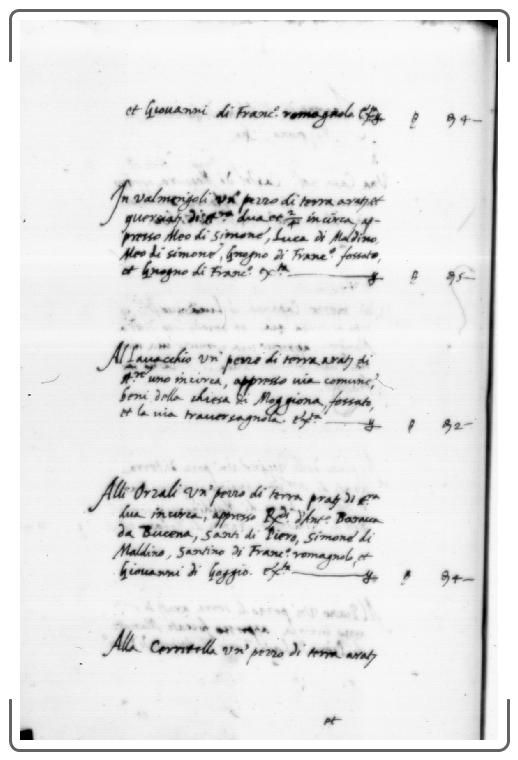 et Giovanni di Franc.º romagnolo etc.
In Valmerigoli un' pezzo di terra arat.
querciat. di dua et 2/4 incirca, ap-
presso Meo di Simone, Luca di Maldino,
Meo di simone, Gnogno di Franc.º fossato,
et Gnogno di Franc.º
Al Lavacchio un' pezzo di terra arat. di
uno incirca, appresso via comune,
beni della chiesa di Moggiona, fossato,
et la via traversagnola.
Alli Orzali un' pezzo di terra prat. di
dua incirca, appresso d'Ant.º Baracca
da Bucena, Santi di Piero, Simone di
Maldino, Santino di Franc.º romagnolo, et
Giovanni di Goggio.
Alla Cerretella un' pezzo di terra arat.
et